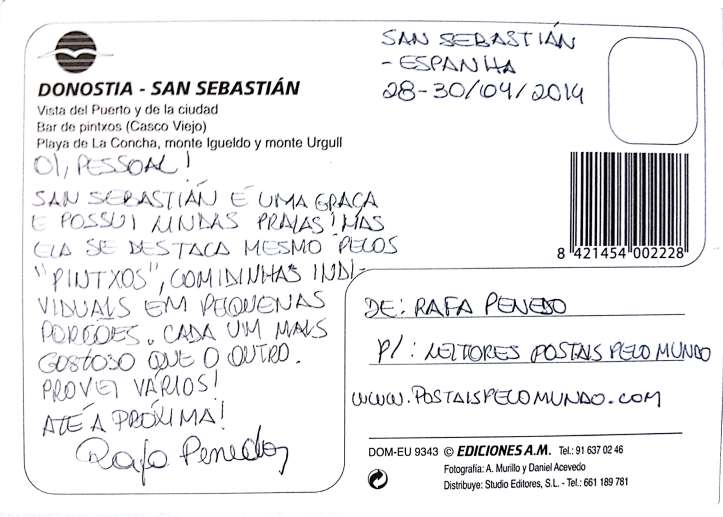 DONOSTIA - SAN SEBASTIÁN
Vista del Puerto y de la ciudad
Bar de pintxos (Casco Viejo)
Playa de La Concha, monte Igueldo y monte Urgull
OI, PESSOAL!
SAN SEBASTIÁN É UMA GRAÇA
E POSSUI LINDAS PRAIAS! MAS
ELA SE DESTACA MESMO PELOS
"PINTXOS", COMIDINHAS INDI-
VIDUAIS EM PEQUENAS
PORÇÕES. CADA UM MAIS
GOSTOSO QUE O OUTRO.
PROVEI VÁRIOS!
ATÉ A PRÓXIMA!
Rafa Penedo
SAN SEBASTIÁN
- ESPANHA
28-30/04/2014
8 421454 002228
DE: RAFA PENEDO
P/: LEITORES POSTAIS PELO MUNDO
WWW.POSTAISPELOMUNDO.COM
DOM-EU 9343 © EDICIONES A.M. Tel.: 91 637 02 46
Fotografía: A. Murillo y Daniel Acevedo
Distribuye: Studio Editores, S.L. - Tel.: 661 189 781